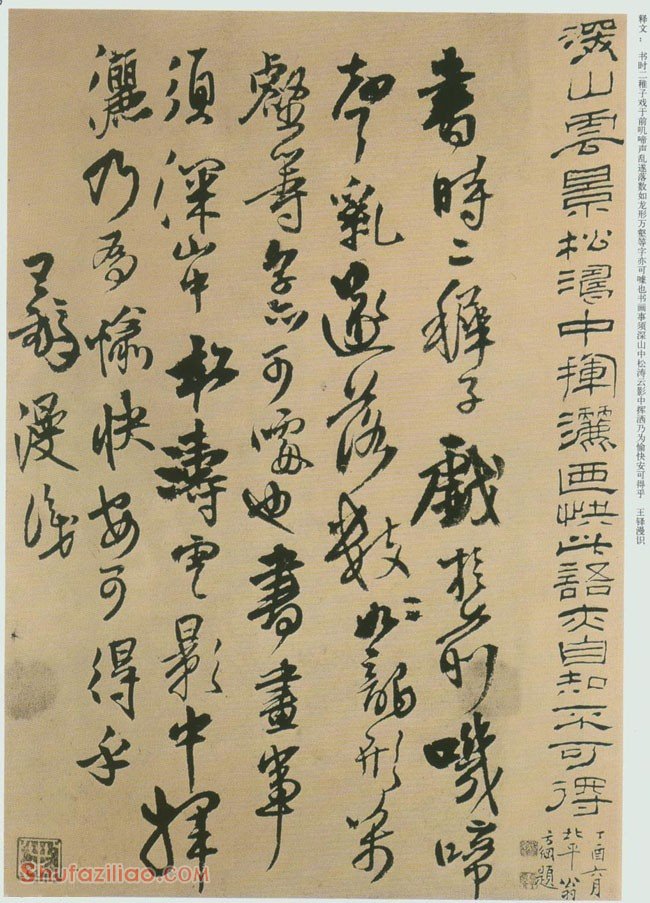 释文： 书时二稚子戏于前叽啼声乱遂落数如龙形万壑等字亦可噱也书画事须深山中松涛云影中挥洒乃为愉快安可得乎 王铎漫识
深山雲景松濤中揮灑快此語亦自知不可得
丁酉六月
北平翁
方綱題
書時二稺子戲於前嘰啼
聲亂遂落數如龍形萬
壑等字亦可噱也書畫事
須深山中松濤雲影中揮
灑乃為愉快安可得乎
王鐸漫識
Shufaziliao.com